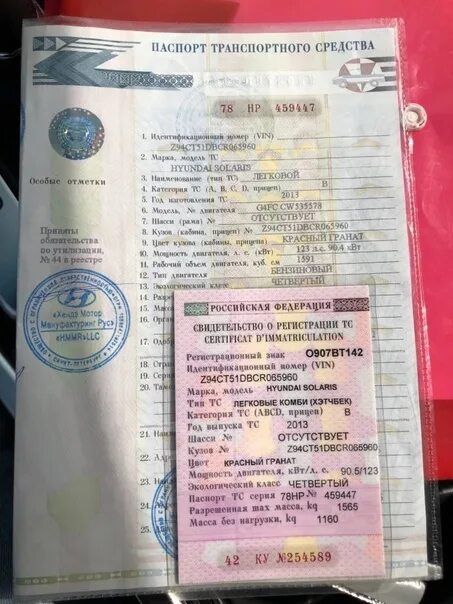 ПАСПОРТ ТРАНСПОРТНОГО СРЕДСТВА
78 НР 459447
1. Идентификационный номер (VIN)
Z94CT51DBCR065960
2. Марка, модель ТС
HYUNDAI SOLARIS
3. Наименование (тип ТС) ЛЕГКОВОЙ
4. Категория ТС (A, B, C, D, прицеп) B
5. Год изготовления ТС 2013
6. Модель, № двигателя G4FC CW535578
7. Шасси (рама) № ОТСУТСТВУЕТ
8. Кузов (кабина, прицеп) № Z94CT51DBCR065960
9. Цвет кузова (кабины, прицепа) КРАСНЫЙ ГРАНАТ
10. Мощность двигателя, л. с. (кВт) 123 л.с. 90.4 кВт
11. Рабочий объем двигателя, куб. см 1591
12. Тип двигателя БЕНЗИНОВЫЙ
13. Экологический класс ЧЕТВЕРТЫЙ
14.
15.
16.
17. Одобр
18.
19.
20.
21.
22.
23.
24.
25.
Особые отметки
Приняты
обязательства
по утилизации,
№ 44 в реестре
«Хендэ Мотор
Мануфактуринг Рус»
«HMMR»LLC
РОССИЙСКАЯ ФЕДЕРАЦИЯ
СВИДЕТЕЛЬСТВО О РЕГИСТРАЦИИ ТС
CERTIFICAT D'IMMATRICULATION
Регистрационный знак О907ВТ142
Идентификационный номер (VIN)
Z94CT51DBCR065960
Марка, модель HYUNDAI SOLARIS
Тип ТС ЛЕГКОВЫЕ КОМБИ (ХЭТЧБЕК)
Категория ТС (ABCD, прицеп) B
Год выпуска ТС 2013
Шасси № ОТСУТСТВУЕТ
Кузов № Z94CT51DBCR065960
Цвет КРАСНЫЙ ГРАНАТ
Мощность двигателя, кВт/л. с. 90.5/123
Экологический класс ЧЕТВЕРТЫЙ
Паспорт ТС серия 78НР № 459447
Разрешенная max масса, kg 1565
Масса без нагрузки, kg 1160
42 КУ №254589